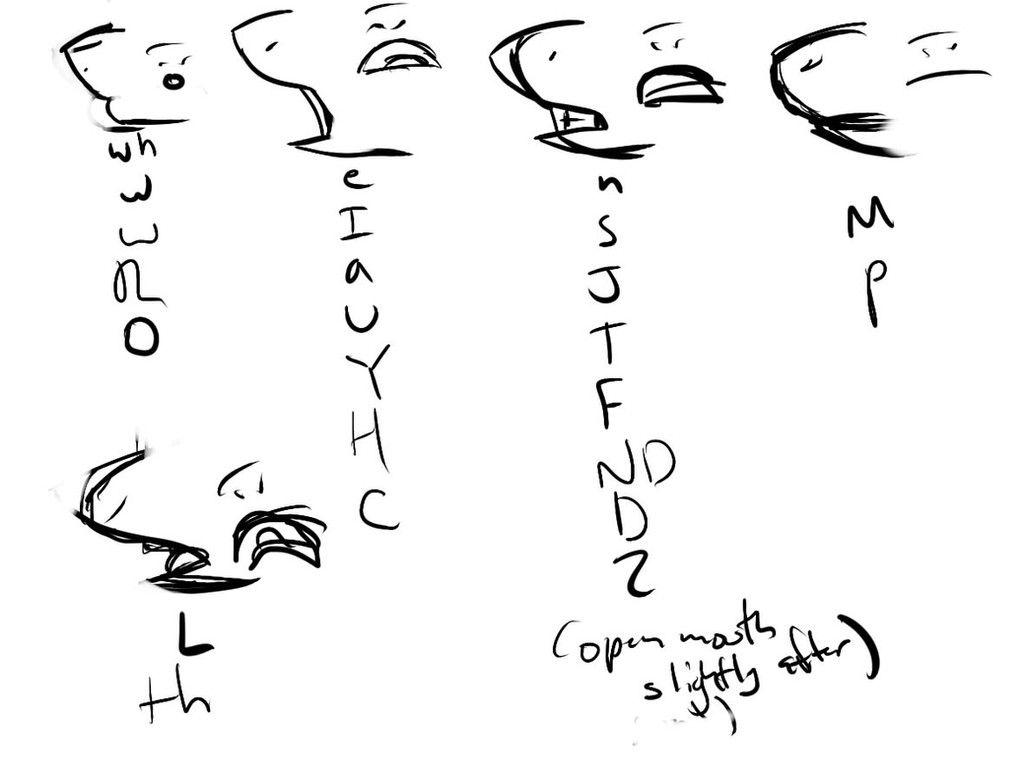 wh
w
O
e
I
a
U
Y
H
C
n
S
J
T
F
ND
D
Z
(open mouth
slightly after)
M
P
L
th